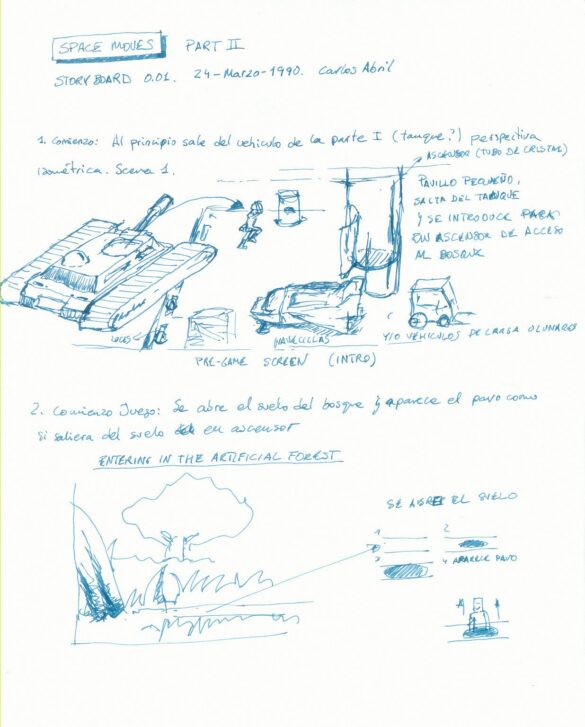 SPACE MOVES PART II
STORYBOARD 0.01. 24-Marzo-1990. Carlos Abril
1. Comienzo: Al principio sale del vehiculo de la parte I (tanque?) perspectiva
isométrica. Scena 1.
ASCENSOR (TUBO DE CRISTAL)
PAVILLO PEQUEÑO,
SALTA DEL TANQUE
Y SE INTRODUCE PARA
UN ASCENSOR DE ACCESO
AL BOSQUE
LUCES
NAVECILLAS
Y/O VEHICULOS DE CARGA O LUNARES
PRE-GAME SCREEN (INTRO)
2. Comienzo Juego: Se abre el suelo del bosque y aparece el pavo como
si saliera del suelo en ascensor
ENTERING IN THE ARTIFICIAL FOREST
SE ABRE EL SUELO
1 2
3 4 APARECE PAVO